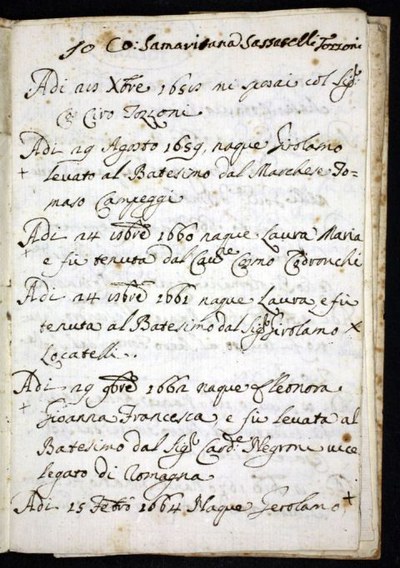 Io Co: Samaritana Sassatelli Tozzoni
Adi Xbre mi sposai col Sigr
Co Ciro Tozzoni
Adi 29 Agosto 1659, naque Girolamo
+ levato al Batesimo dal Marchese To-
maso Campeggi
Adi 24 1660 naque Laura Maria
+ e fù tenuta dal Cavre Cosmo Codronchi
Adi 24 1661 naque Laura e fù
tenuta al Batesimo dal Sigr Girolamo X
Locatelli..
Adi 29 9bre 1662 naque Eleonora
+ Gioanna Francesca e fù levata al
Batesimo dal Sigr Cardle Negroni vice
legato di Romagna
Adi 15 1664 Naque Gerolamo +